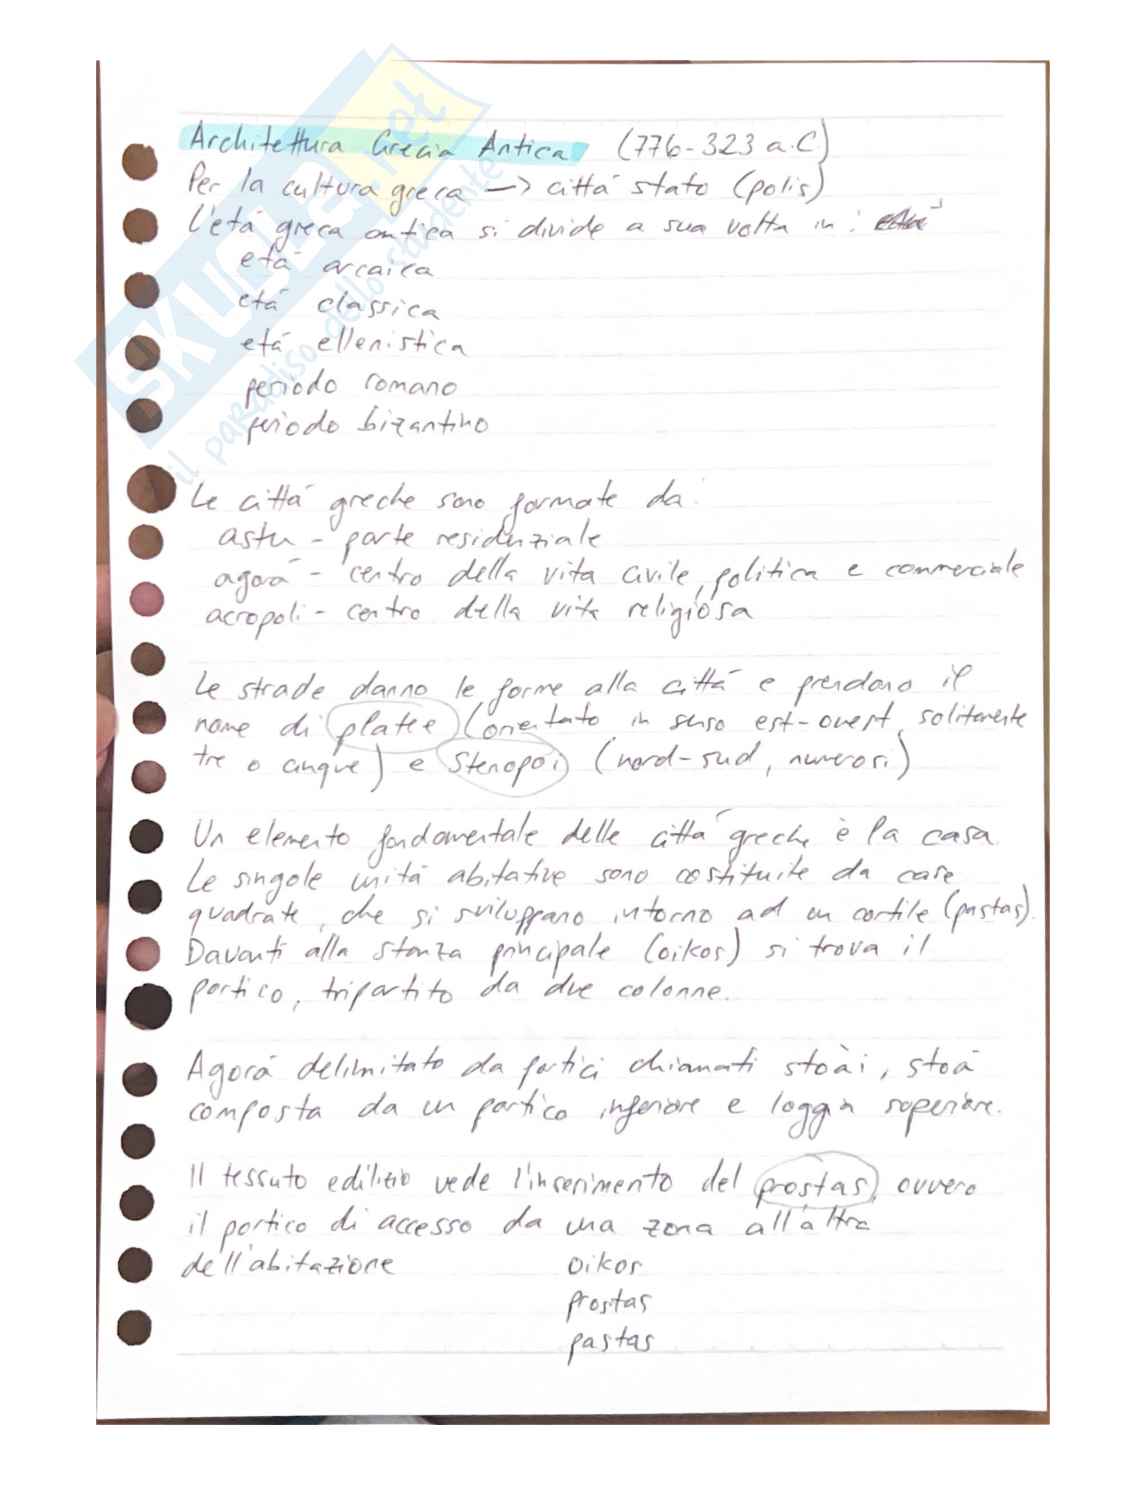 Architettura Grecia Antica (776-323 a.C)
Per la cultura greca —> cittá stato (polis)
l'etá greca antica si divide a sua volta in:
etá arcaica
etá classica
etá ellenistica
periodo romano
periodo bizantino
Le cittá greche sono formate da:
astu - parte residenziale
agorá - centro della vita civile, politica e commerciale
acropoli - centro della vita religiosa
Le strade danno le forme alla cittá e prendono il
nome di platee (orientato in senso est-ovest, solitamente
tre o cinque) e stenopoi (nord-sud, numerosi)
Un elemento fondamentale delle cittá greche è la casa.
Le singole unitá abitative sono costituite da case
quadrate, che si sviluppano intorno ad un cortile (pastas).
Davanti alla stanza principale (oikos) si trova il
portico, tripartito da due colonne.
Agorá delimitato da portici chiamati stoài, stoà
composta da un portico inferiore e loggia superiore.
Il tessuto edilizio vede l'inserimento del prostas, ovvero
il portico di accesso da una zona all'altra
dell'abitazione
oikos
prostas
pastas
SKUOLA.net
il paradiso dello studente